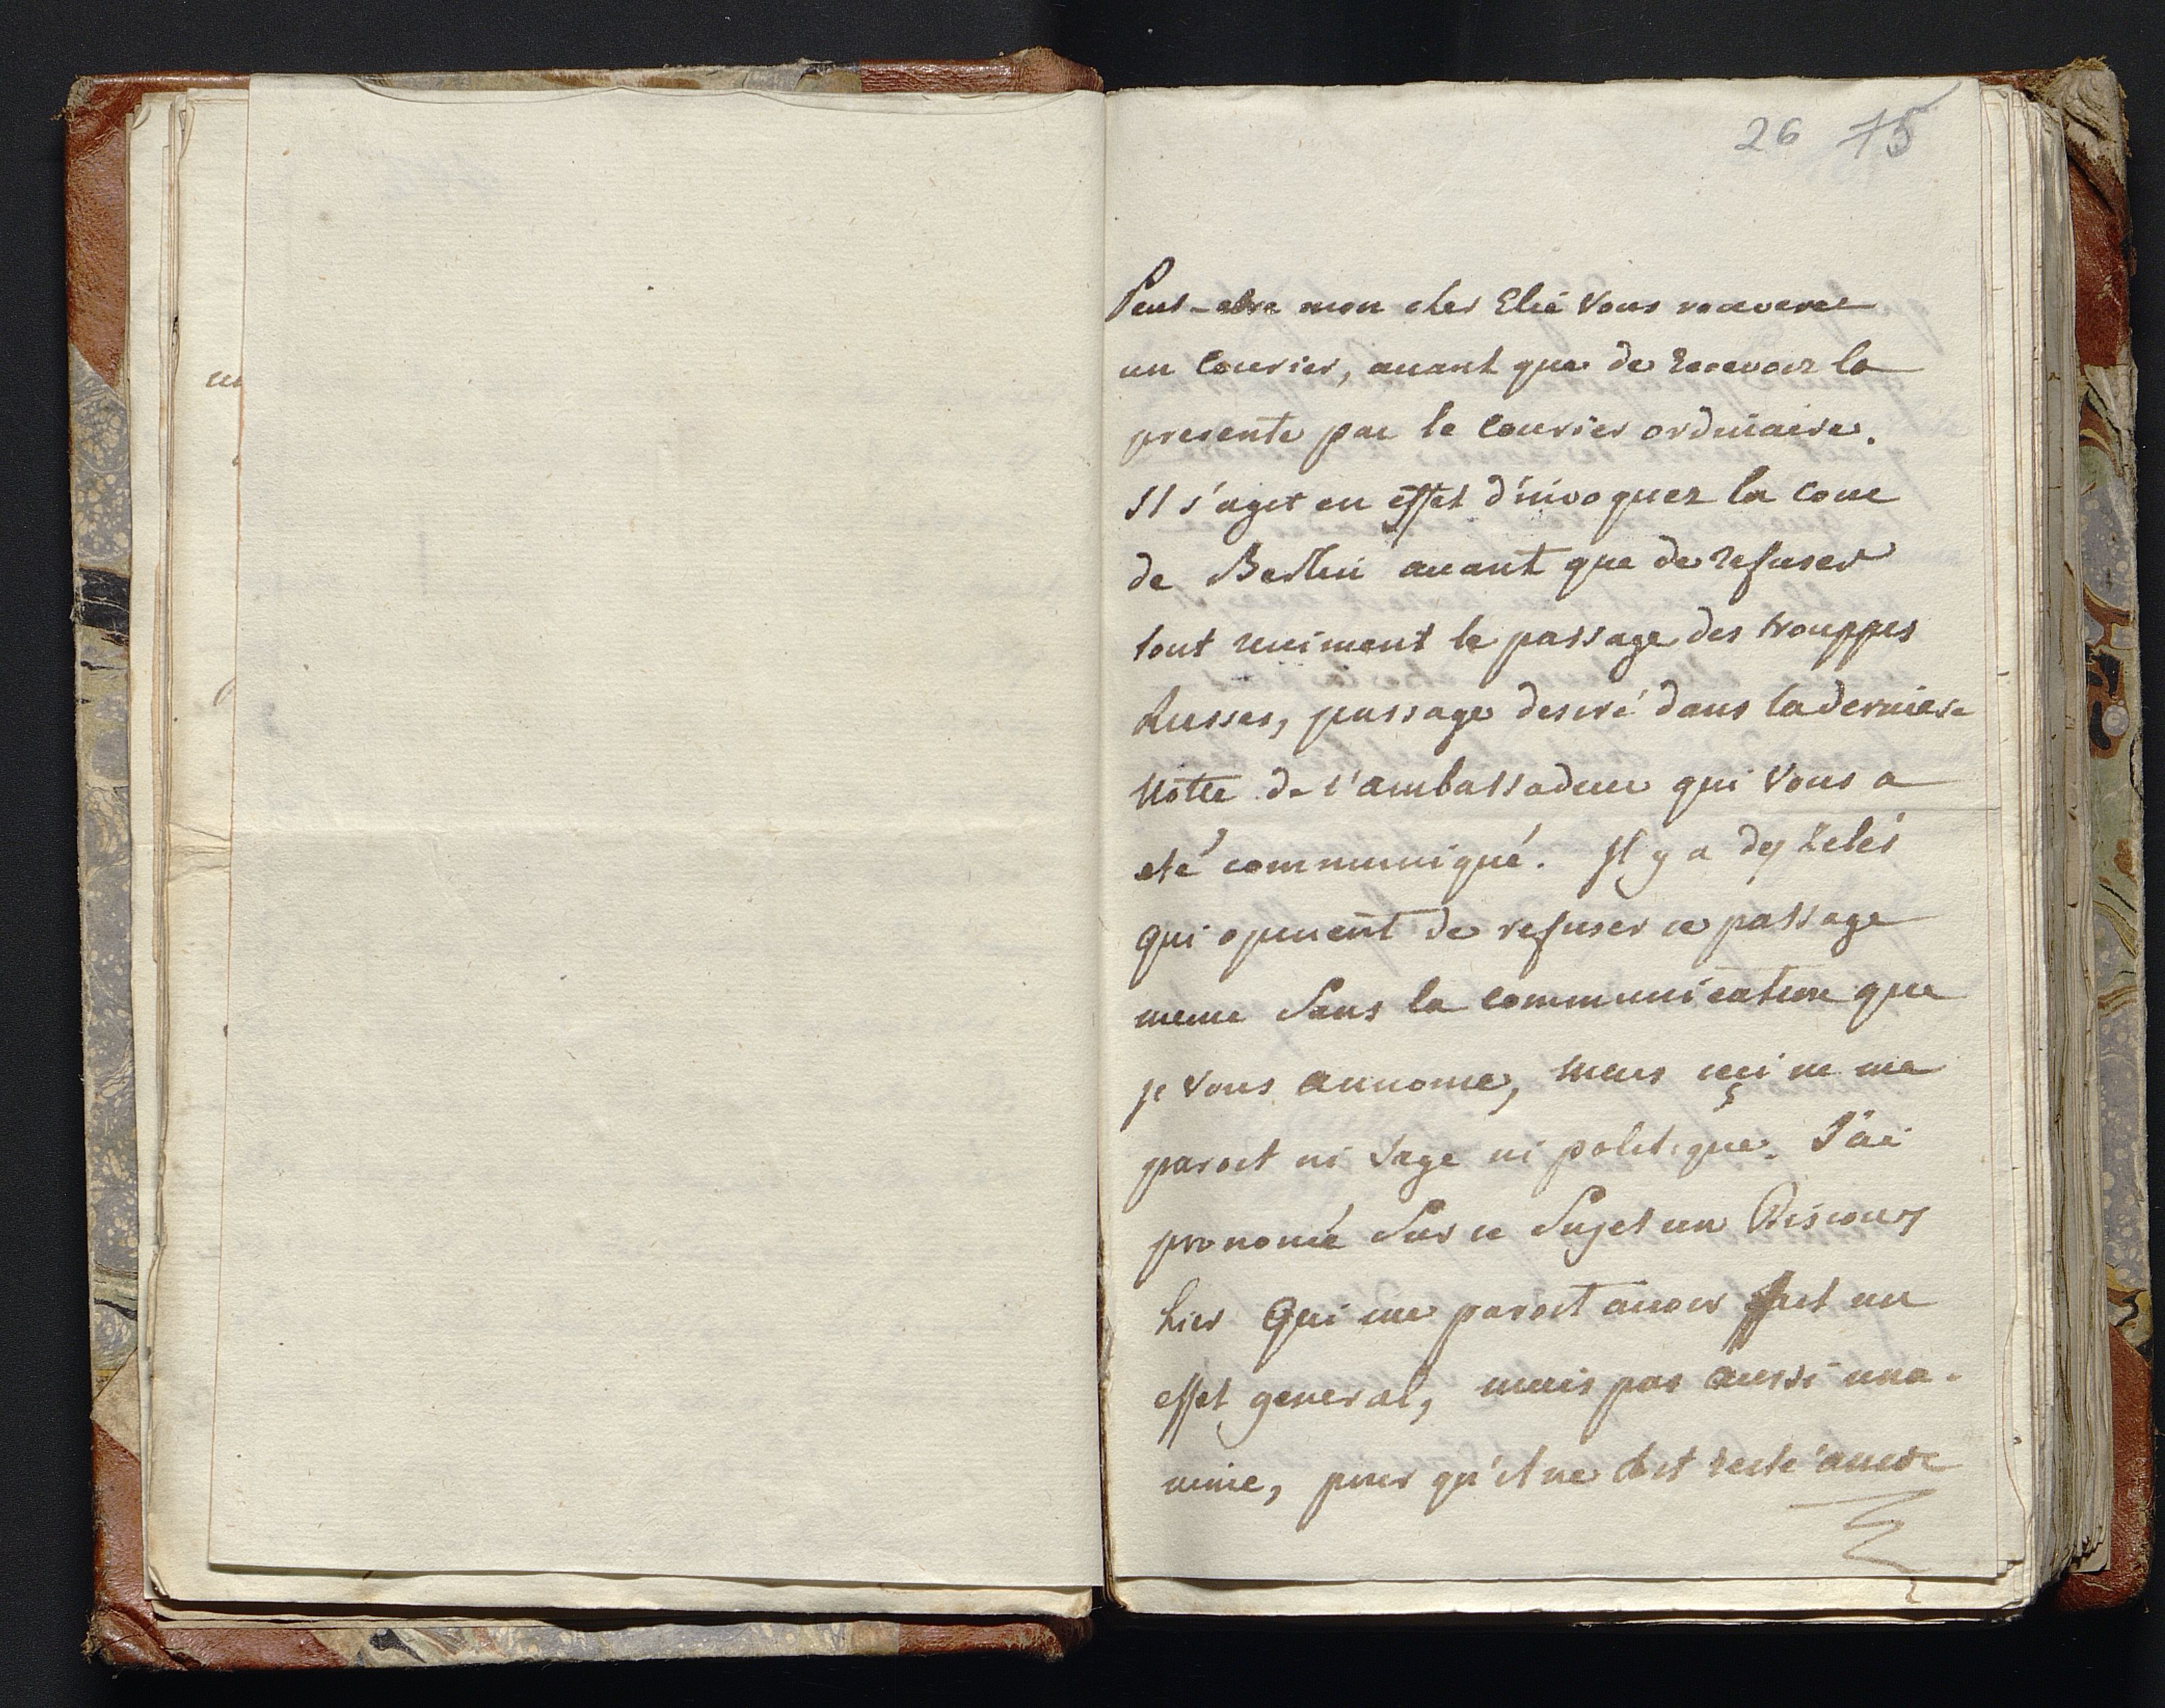 26 75
Peut-etre mon cher Elie vous receverez
un Courier, auant que de recevoir la
presente par le Courier ordinaire.
Il s'agit en effet d'invoquer la cour
de Berlin auant que de refuser
tout uniment le passage des trouppes
Russes, passage desiré dans la derniere
Notte de l'ambassadeur qui vous a
eté communiqué. Il y a des Zelés
qui opinent de refuser ce passage
meme Sans la communication que
je vous annonce, mais ceci ne me
paroit ni Sage ni politique. J'ai
prononcé Sur ce Sujet un Discours
hier Qui me paroit auoir fait un
effet general, mais pas aussi una-
nime, pour qu'il ne soit resté aucune